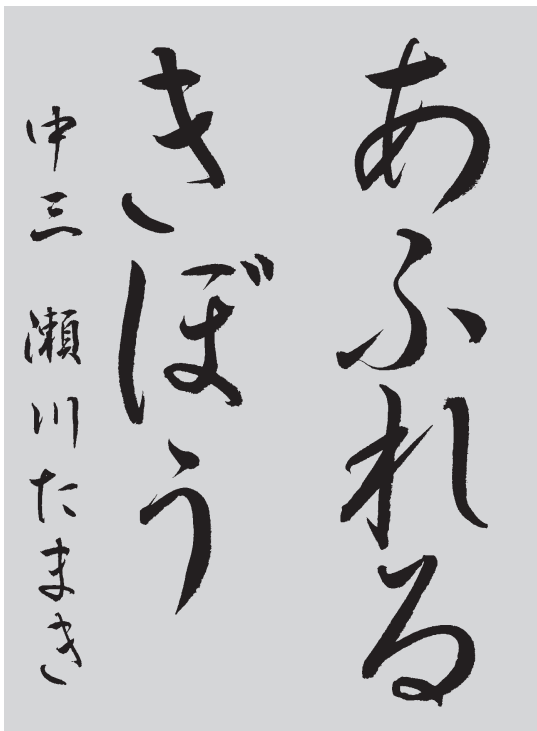 あふれる
きぼう
中三 瀬川たまき